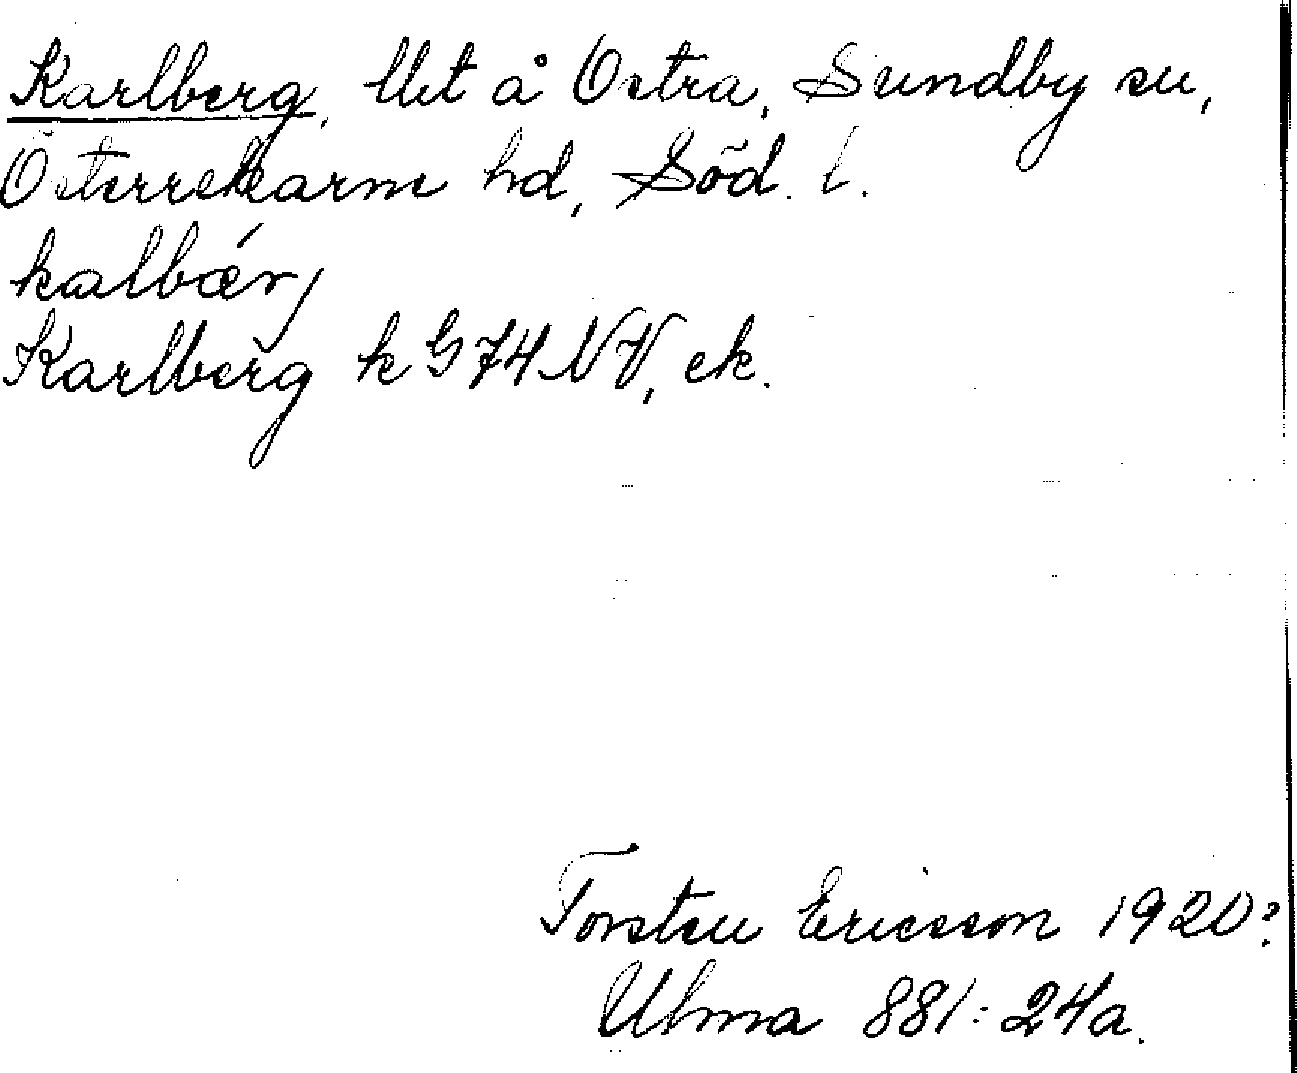 Karlberg, Utet å Östra, Sundby sn,
Österrekarne hd, Söd. l.
kalbǽrj
Karlberg k G74 NV, ek.
Torsten Ericsson 1920?
Ulma 881:24a.